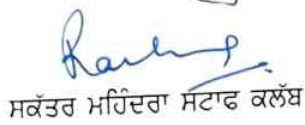 ਸਕੱਤਰ ਮਹਿੰਦਰਾ ਸਟਾਫ ਕਲੱਬ